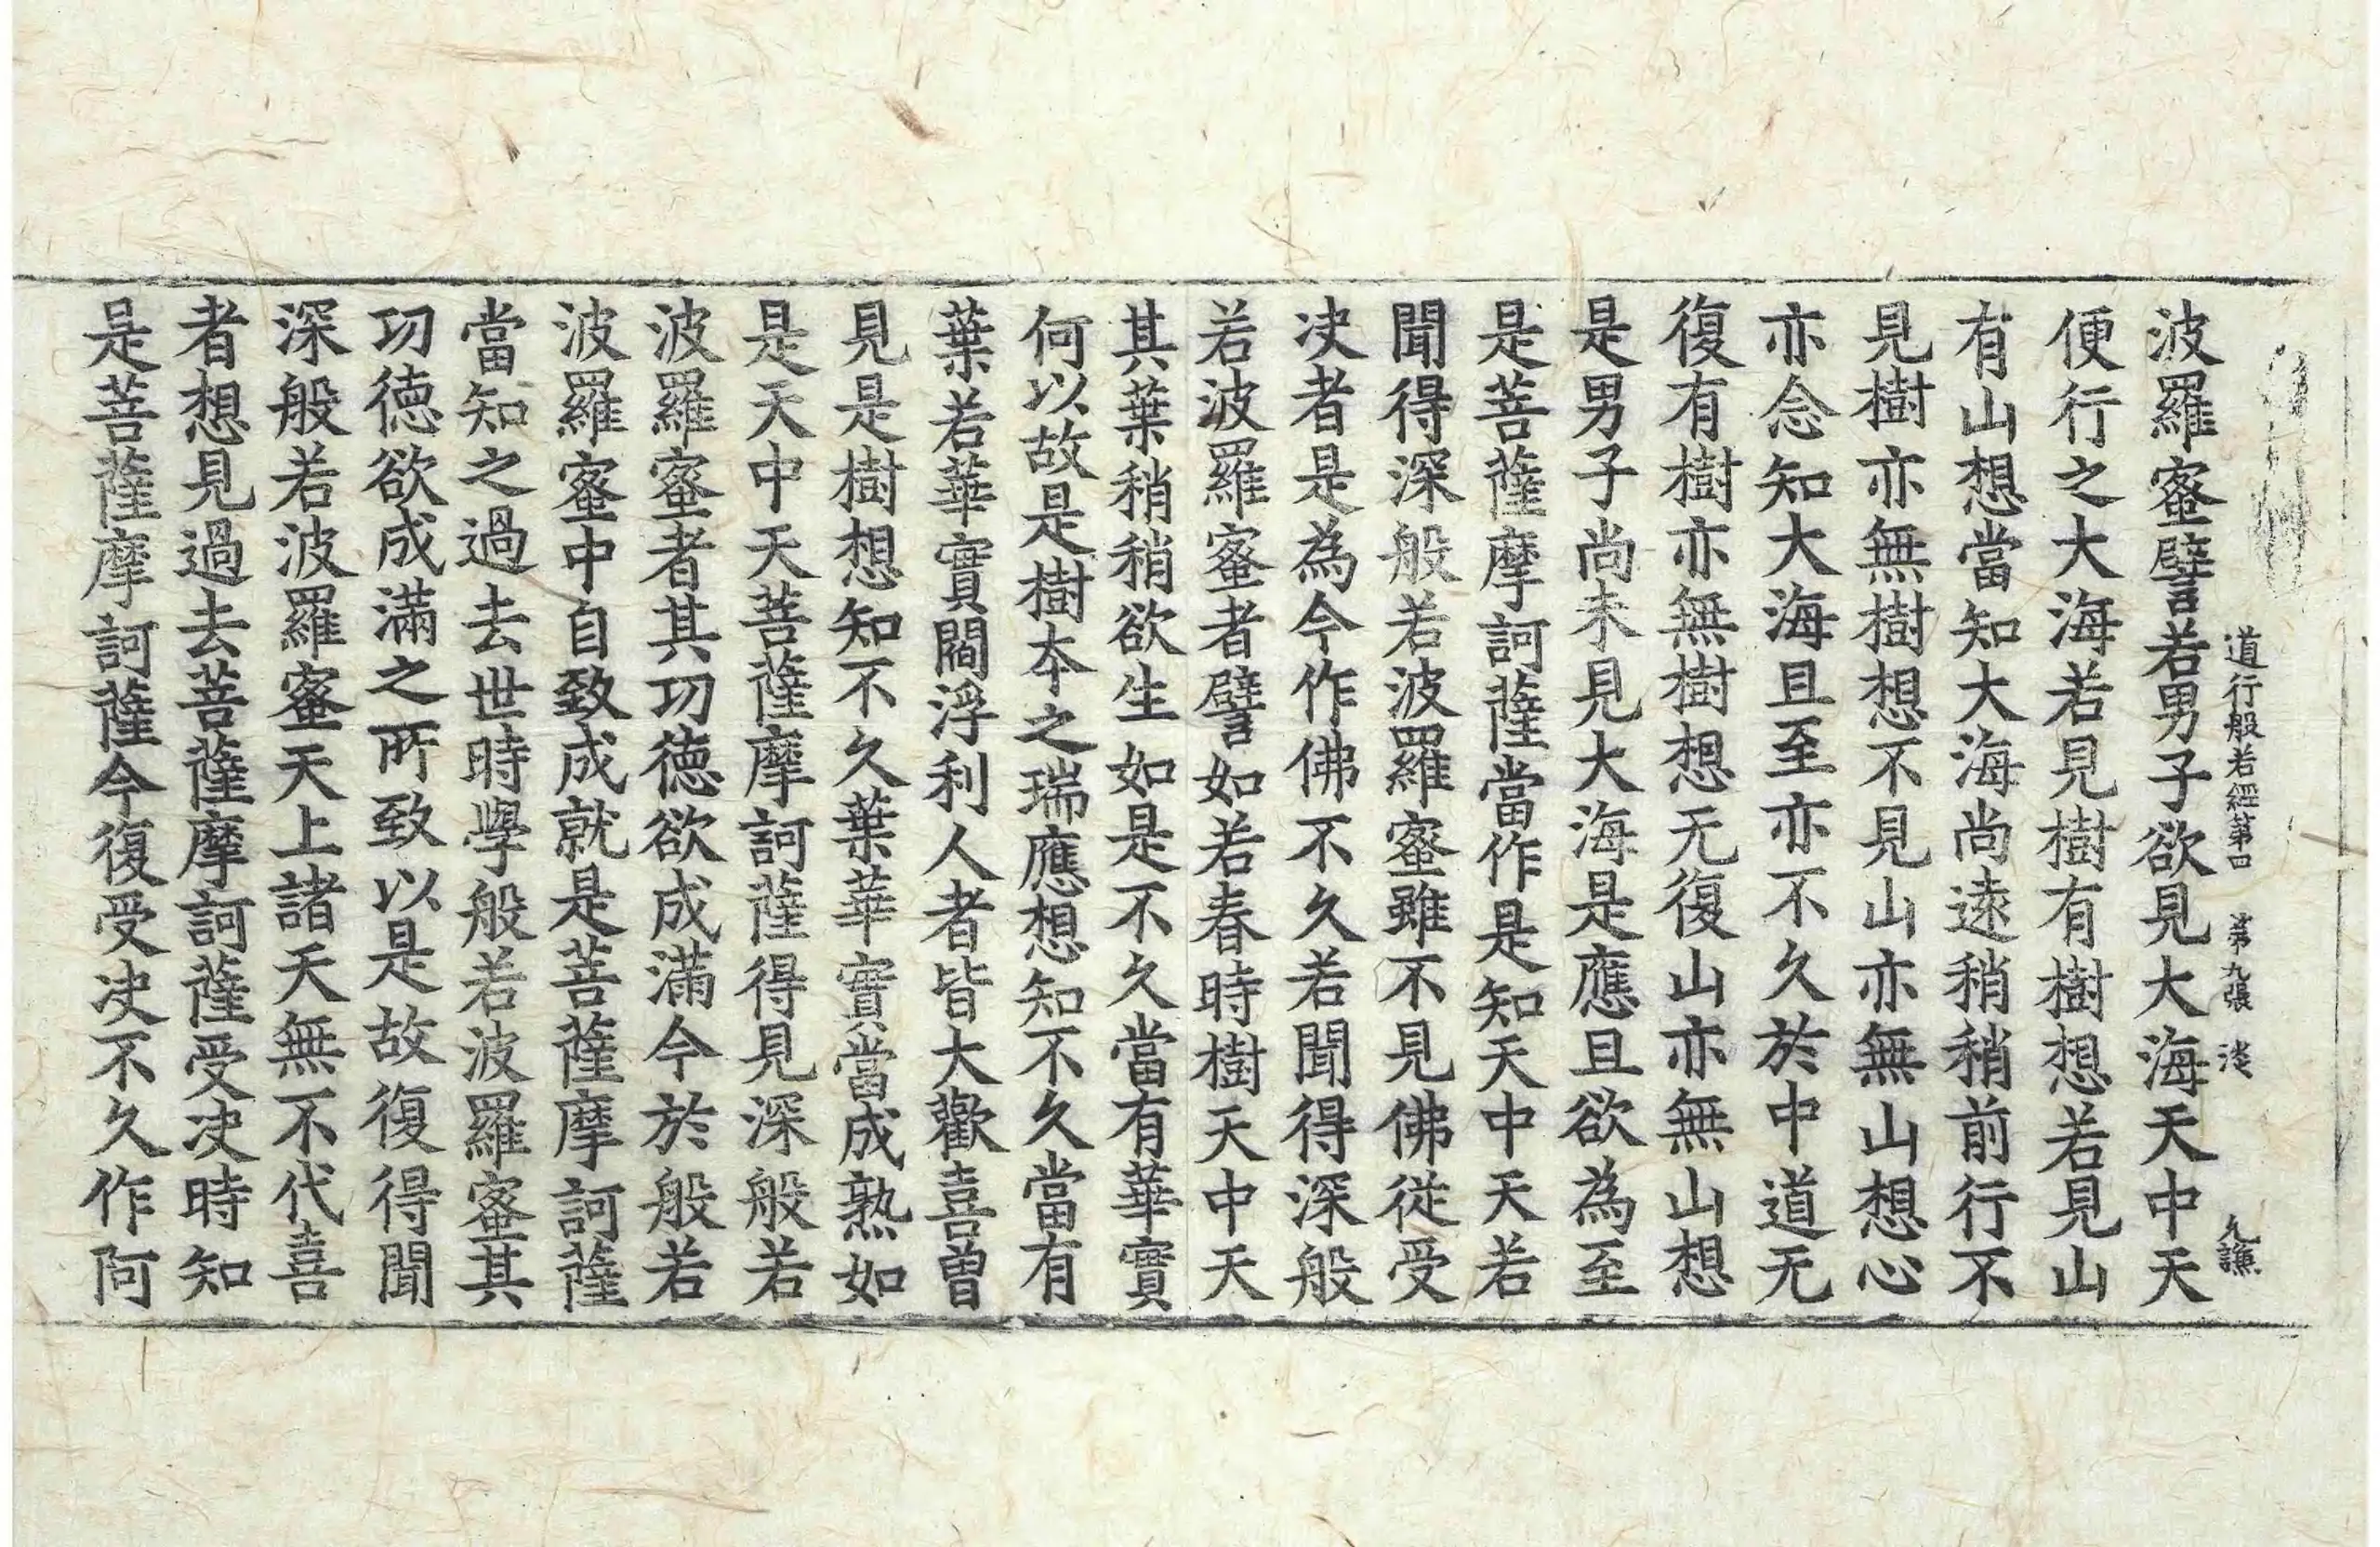 道行般若經第四 第九張 淡 九謙
波羅蜜譬若男子欲見大海天中天
便行之大海若見樹有樹想若見山
有山想當知大海尚遠稍稍前行不
見樹亦無樹想不見山亦無山想心
亦念知大海且至亦不久於中道无
復有樹亦無樹想无復山亦無山想
是男子尚未見大海是應且欲為至
是菩薩摩訶薩當作是知天中天若
聞得深般若波羅蜜雖不見佛從受
决者是為今作佛不久若聞得深般
若波羅蜜者譬如若春時樹天中天
其葉稍稍欲生如是不久當有華實
何以故是樹夲之瑞應想知不久當有
葉若華實閻浮利人者皆大歡喜曾
見是樹想知不久葉華實當成熟如
是天中天菩薩摩訶薩得見深般若
波羅蜜者其功德欲成滿今於般若
波羅蜜中自致成就是菩薩摩訶薩
當知之過去世時學般若波羅蜜其
功德欲成滿之所致以是故復得聞
深般若波羅蜜天上諸天無不代喜
者想見過去菩薩摩訶薩受决時知
是菩薩摩訶薩今復受决不久作阿